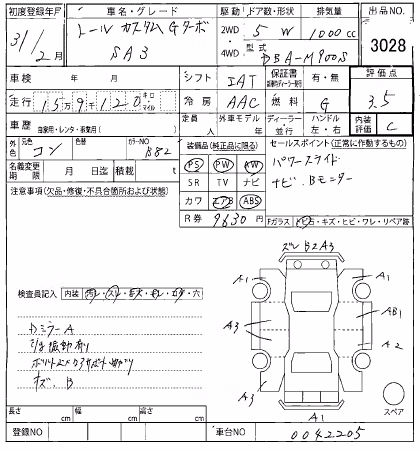 初度登録年月 車名・グレード 駆動 ドア数・形状 排気量 出品NO
31/2月 トール カスタムGターボ SA3 2WD 5 W 1000cc 3028
4WD 型式 DBA-M900S
車検 年 月 シフト IAT 保証書 有・無 評価点
走行 15万9千120キロ マイル 冷房 AAC 燃料 G 3.5
車歴 自家用・レンタ・事業用( ) 定員 人 外車モデル ディーラー 並行 ハンドル 左・右 内装評価 C
外色 元色 コン 色替 カラーNO B82 装備品(純正品に限る) セールスポイント(正常に作動するもの)
名義変更期限 月 日迄 積載 t PS PW AW パワースライド
注意事項(欠品・修復・不具合箇所および状態) SR TV ナビ ナビ Bモニター
カワ エアB ABS
R券 9630 Fガラス トビ石・キズ・ヒビ・ワレ・リペア跡
ズレ B2 A3
検査員記入 内装
A1 A1
A3 AB1
A2
DミラーA
キズ、B
A3 A1 スペア
長さ cm 幅 cm 高さ cm
登録NO 車台NO 0042205